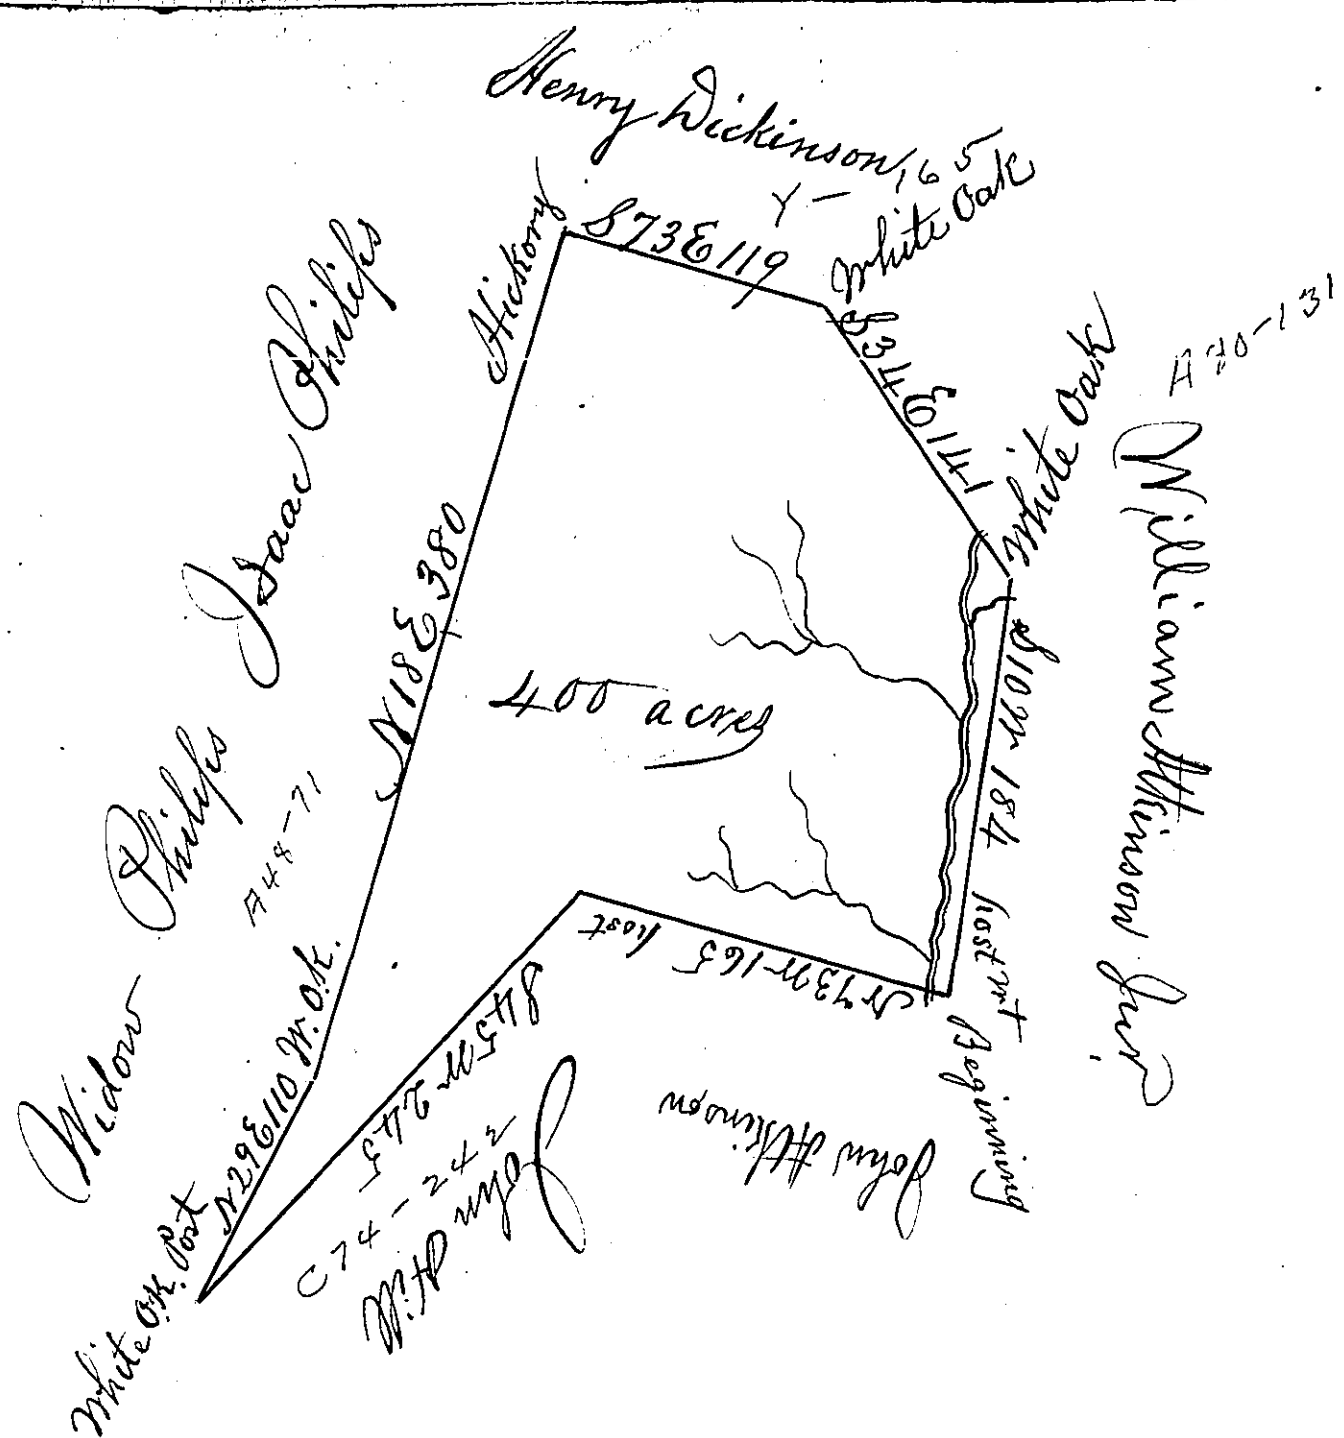 Henry Dickinson
Y - 165
Hickory
S73E119
White Oak
S34E141
White Oak
A70-131
William Atkinson Junr
S10W 184
Post wt
Beginning
N73W 165
Post
John Atkinson
S45W 245
John Hill
C74-242
White OK. Post
N29E110
W.O.K.
N18E380
Widow Philips
A48-71
Isaac Philips
400 acres